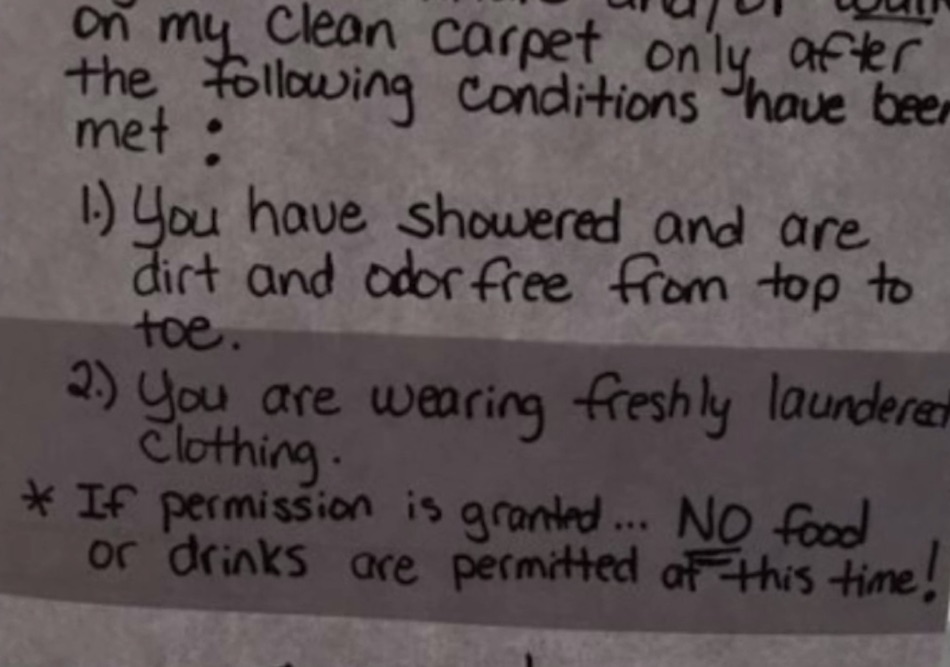 and/or walk
on my clean carpet only after
the following conditions have been
met :
1.) You have showered and are
dirt and odor free from top to
toe.
2.) You are wearing freshly laundered
clothing.
* If permission is granted... NO food
or drinks are permitted at this time!